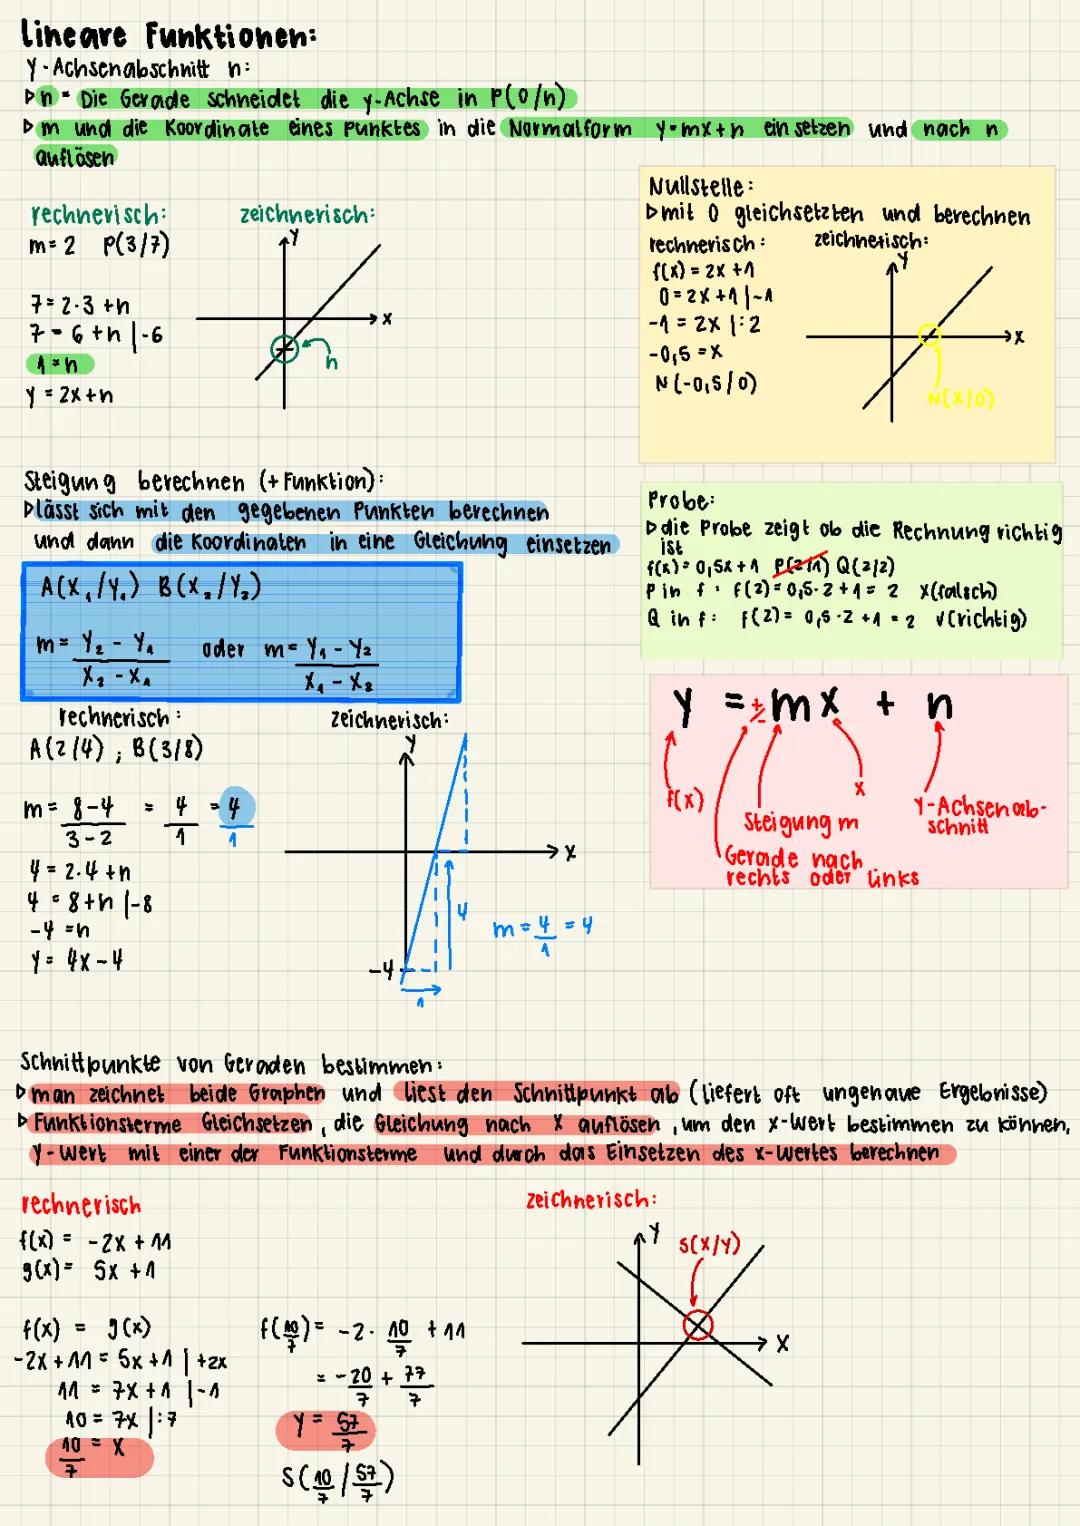 Lineare Funktionen:
Y-Achsenabschnitt n:
▷n = Die Gerade schneidet die y-Achse in P(0/n)
▷m und die Koordinate eines Punktes in die Normalform y=mx+n einsetzen und nach n
auflösen
rechnerisch:
m=2 P(3/7)
7=2·3+n
7=6+n |-6
1=n
y=2x+n
zeichnerisch:
y
x
n
Nullstelle:
▷mit 0 gleichsetzten und berechnen
rechnerisch:
f(x)=2x+1
0=2x+1 |-1
-1=2x |:2
-0,5=x
N(-0,5/0)
zeichnerisch:
y
x
N(x/0)
Steigung berechnen (+Funktion):
▷lässt sich mit den gegebenen Punkten berechnen
und dann die Koordinaten in eine Gleichung einsetzen
A(X₁/Y₁) B(X₂/Y₂)
m= Y₂-Y₁ / X₂-X₁ oder m= Y₁-Y₂ / X₁-X₂
rechnerisch:
A(2/4); B(3/8)
m= 8-4 / 3-2 = 4/1 = 4/1
4=2·4+n
4=8+n |-8
-4=n
y=4x-4
zeichnerisch:
y
x
4
m=4/1=4
-4
1
Probe:
▷die Probe zeigt ob die Rechnung richtig
ist
f(x)=0,5x+1 P(2/1) Q(2/2)
P in f: f(2)=0,5·2+1=2 x(falsch)
Q in f: f(2)=0,5·2+1=2 √(richtig)
y = ± mx + n
f(x)
Steigung m
x
Y-Achsenab-
schnitt
Gerade nach
rechts oder links
Schnittpunkte von Geraden bestimmen:
▷man zeichnet beide Graphen und liest den Schnittpunkt ab (liefert oft ungenaue Ergebnisse)
▷Funktionsterme Gleichsetzen, die Gleichung nach X auflösen, um den x-Wert bestimmen zu können,
y-Wert mit einer der Funktionsterme und durch das Einsetzen des x-Wertes berechnen
rechnerisch
f(x) = -2x+11
g(x)= 5x+1
f(x) = g(x)
-2x+11=5x+1 |+2x
11=7x+1 |-1
10=7x |:7
10/7=x
f(10/7)= -2· 10/7 +11
= -20/7 + 77/7
y= 57/7
S(10/7 / 57/7)
zeichnerisch:
y
S(x/y)
x